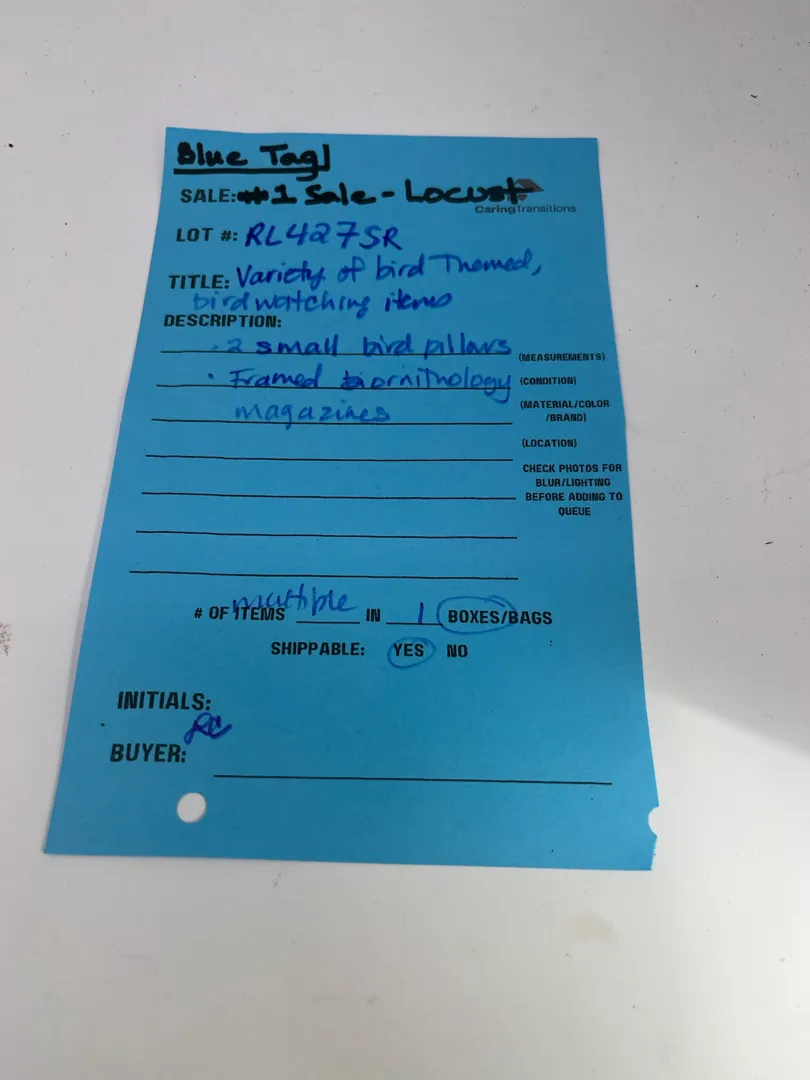 Blue Tag
SALE: #1 Sale - Locust
CaringTransitions
LOT #: RL427SR
TITLE: Variety of bird Themed,
bird watching items
DESCRIPTION:
· 2 small bird pillars
(MEASUREMENTS)
· Framed ornithology
(CONDITION)
magazines
(MATERIAL/COLOR
/BRAND)
(LOCATION)
CHECK PHOTOS FOR
BLUR/LIGHTING
BEFORE ADDING TO
QUEUE
# OF ITEMS multiple IN 1 BOXES/BAGS
SHIPPABLE: YES NO
INITIALS:
RC
BUYER: